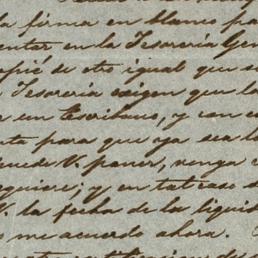 la firma en blanco pa
entar en la Tesorería Gen
opié de otro igual que s
Tesorería exigen que la
r un Escribano, y con e
ta para que sea la
uede V. poner, venga
quiere; y en tal caso
V. la fecha de la liquid
me acuerdo ahora.